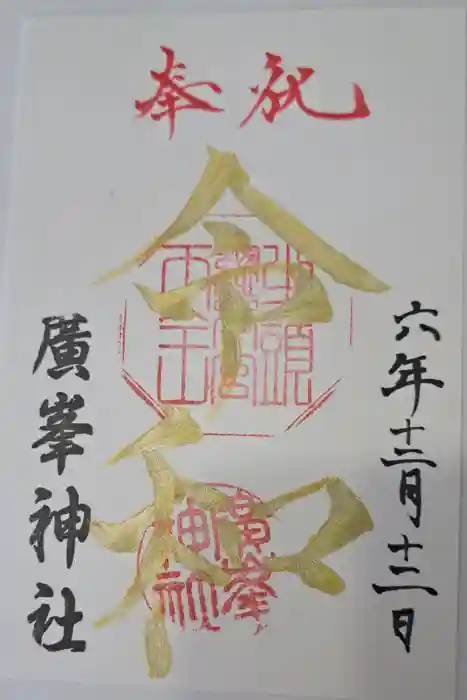 奉祝
六年十二月十二日
令和
牛頭
天王
廣峯
神社
廣峯神社